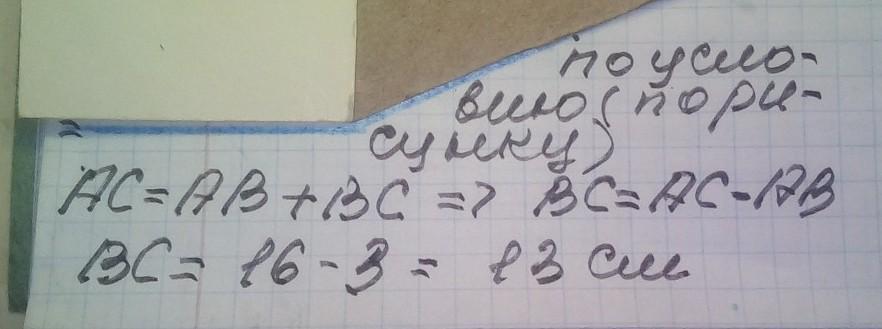 по усло-
вию (по ри-
=
сунку)
AC = AB + BC => BC = AC - AB
BC = 16 - 3 = 13 см